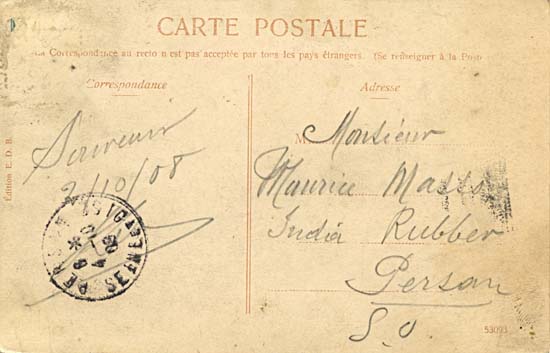 CARTE POSTALE
La Correspondance au recto n'est pas acceptée par tous les pays étrangers. (Se renseigner à la Poste
Correspondance
Adresse
Souvenir
2/10/08
Monsieur
Maurice Masso
India Rubber
Persan
S. O
Édition E. D. B.
PERSAN
SEINE-ET-OISE
53093